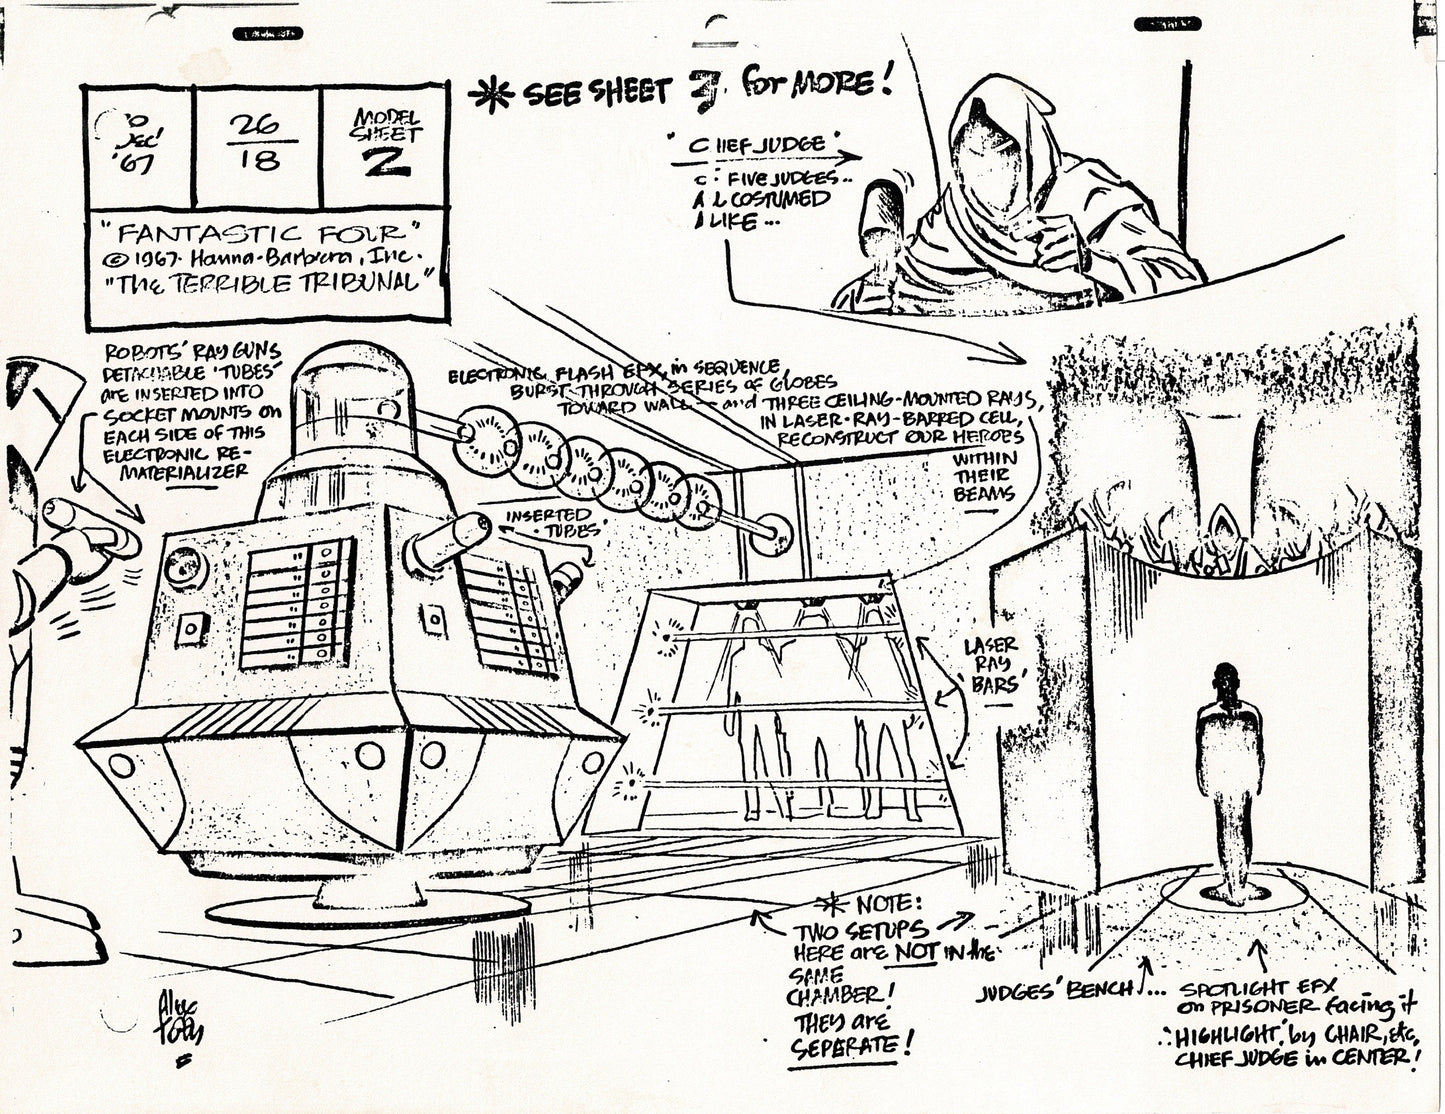 * SEE SHEET 3 for MORE!
DEC'
'67
26
18
MODEL
SHEET
2
"FANTASTIC FOUR"
© 1967 · Hanna-Barbera, Inc.
"The TERRIBLE TRIBUNAL"
HIEF JUDGE"
FIVE JUDGES..
COSTUMED
LIKE...
ROBOTS' RAY GUNS
DETACHABLE 'TUBES'
are INSERTED INTO
SOCKET MOUNTS on
EACH SIDE OF THIS
ELECTRONIC RE-
MATERIALIZER
ELECTRONIC FLASH EFX, in SEQUENCE
BURST THROUGH SERIES of GLOBES
TOWARD WALL — and THREE CEILING-MOUNTED RAYS,
IN LASER-RAY-BARRED CELL,
RECONSTRUCT OUR HEROES
WITHIN
THEIR
BEAMS
INSERTED
'TUBES'
LASER
RAY
'BARS'
* NOTE:
TWO SETUPS
HERE are NOT IN the
SAME
CHAMBER!
THEY are
SEPARATE!
JUDGES' BENCH...
SPOTLIGHT EFX
on PRISONER facing it
∴ 'HIGHLIGHT' by CHAIR, etc,
CHIEF JUDGE in CENTER!
Alex
Toth